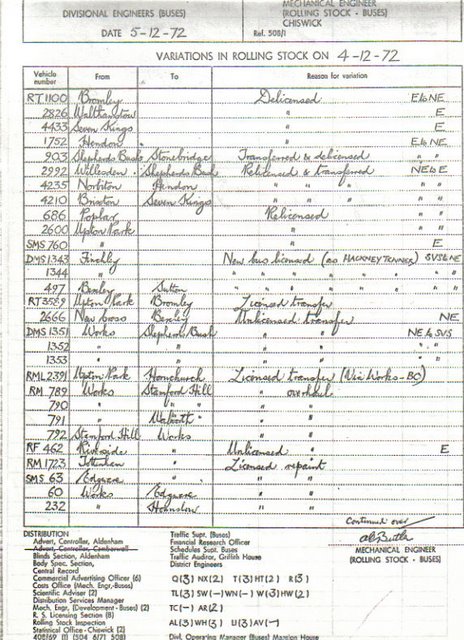 DIVISIONAL ENGINEERS (BUSES)
MECHANICAL ENGINEER
(ROLLING STOCK - BUSES)
CHISWICK
DATE 5-12-72
Ref. 508/1
VARIATIONS IN ROLLING STOCK ON 4-12-72
Vehicle number From To Reason for variation
RT1100 Bromley Delicensed E to NE
2826 Walthamstow " E
4433 Seven Kings " E
1752 Hendon " E to NE
903 Shepherds Bush Stonebridge Transferred & delicensed " "
2992 Willesden Shepherds Bush Relicensed & transferred NE to E
4235 Norbiton Hendon " " " " "
4210 Brixton Seven Kings " " " " "
686 Poplar Relicensed " "
2600 Upton Park " " "
SMS 760 " " E
DMS1343 Finchley New bus licensed (as HACKNEY TONNES) SVS to NE
1344 " " " " " " " " "
497 Bexley Sutton " " " " " " "
RT3569 Upton Park Bromley Licensed transfer
2666 New Cross Bexley Unlicensed transfer NE
DMS1351 Works Shepherds Bush " " NE to SVS
1352 " " " " " "
1353 " " " " " "
RML2391 Upton Park Hornchurch Licensed transfer (Via Works-BO)
RM 789 Works Stamford Hill " overhaul
790 " " " " "
791 " Walworth " "
792 Stamford Hill Works " "
RF 462 Riverside " Unlicensed " E
RM 1723 Tottenham " Licensed repaint
SMS 63 Edgware " " "
60 Works Edgware " "
232 " Hounslow " "
Continued over
MECHANICAL ENGINEER
(ROLLING STOCK - BUSES)
DISTRIBUTION
Advert, Controller, Aldenham
Advert, Controller, Camberwell
Blinds Section, Aldenham
Body Spec. Section,
Central Record
Commercial Advertising Officer (6)
Costs Office (Mech. Engr-Buses)
Scientific Adviser (2)
Distribution Services Manager
Mech. Engr, (Development-Buses) (2)
R. S. Licensing Section (8)
Rolling Stock Inspection
Statistical Office-Chiswick (2)
Traffic Supt. (Buses)
Financial Research Officer
Schedules Supt. Buses
Traffic Auditor, Griffith House
District Engineers
Q(3) NX(2) T(3) HT(2) R(3)
TL(3) SW(-) WN(-) W(3) HW(2)
TC(-) AR(2)
AL(3) WH(3) L(3) AV(-)
Divl. Operating Manager (Buses) Mansion House